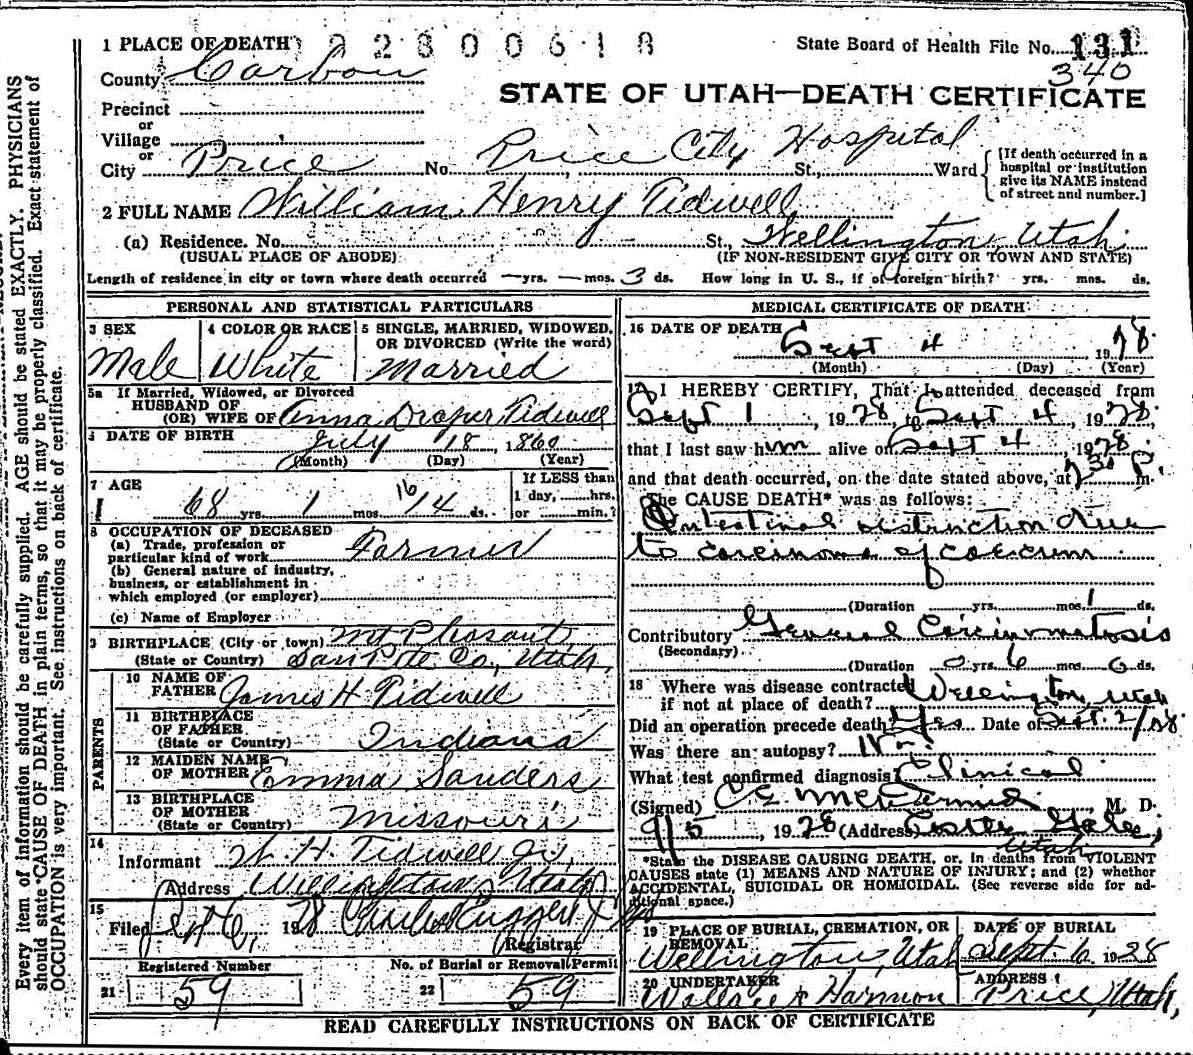 1 PLACE OF DEATH 2 2 8 0 0 6 1 8 State Board of Health File No. 131
County Carbon 340
STATE OF UTAH—DEATH CERTIFICATE
Precinct
or
Village
or
City Price No. Price City Hospital St., Ward
[If death occurred in a hospital or institution give its NAME instead of street and number.]
2 FULL NAME William Henry Tidwell
(a) Residence. No. St., Wellington, Utah.
(USUAL PLACE OF ABODE) (IF NON-RESIDENT GIVE CITY OR TOWN AND STATE)
Length of residence in city or town where death occurred — yrs. — mos. 3 ds. How long in U. S., if of foreign birth? yrs. mos. ds.
PERSONAL AND STATISTICAL PARTICULARS
3 SEX
Male
4 COLOR OR RACE
White
5 SINGLE, MARRIED, WIDOWED, OR DIVORCED (Write the word)
Married
5a If Married, Widowed, or Divorced
HUSBAND OF
(OR) WIFE OF Anna Draper Tidwell
6 DATE OF BIRTH July 18, 1860
(Month) (Day) (Year)
7 AGE
68 yrs. 1 mos. 16 14 ds.
If LESS than
1 day, hrs.
or min.?
8 OCCUPATION OF DECEASED
(a) Trade, profession or
particular kind of work Farmer
(b) General nature of industry,
business, or establishment in
which employed (or employer)
(c) Name of Employer
9 BIRTHPLACE (City or town) Mt Pleasant
(State or Country) San Pete Co., Utah,
PARENTS
10 NAME OF
FATHER James H Tidwell
11 BIRTHPLACE
OF FATHER
(State or Country) Indiana
12 MAIDEN NAME
OF MOTHER Emma Sanders
13 BIRTHPLACE
OF MOTHER
(State or Country) Missouri
14
Informant W. H. Tidwell Jr,
(Address Wellington, Utah)
15
Filed 1928
Registrar
Registered Number
21 59
No. of Burial or Removal Permit
22 59
MEDICAL CERTIFICATE OF DEATH
16 DATE OF DEATH
Sept 4 1928
(Month) (Day) (Year)
17 I HEREBY CERTIFY, That I attended deceased from
Sept 1, 1928, to Sept 4, 1928,
that I last saw him alive on Sept 4 1928
and that death occurred, on the date stated above, at 7 30 P. m.
The CAUSE DEATH* was as follows:
Intestinal obstruction due
to carcinoma of coecum
(Duration yrs. mos. 1 ds.
Contributory General Carcinomatosis
(Secondary)
(Duration 0 yrs. 6 mos. 0 ds.
18 Where was disease contracted
if not at place of death? Wellington, Utah
Did an operation precede death Yes Date of Sept. 2/28
Was there an autopsy? No.
What test confirmed diagnosis Clinical
(Signed) M. D.
9/5, 1928 (Address) Castle Gate,
Utah
*State the DISEASE CAUSING DEATH, or, in deaths from VIOLENT
CAUSES state (1) MEANS AND NATURE OF INJURY; and (2) whether
ACCIDENTAL, SUICIDAL OR HOMICIDAL. (See reverse side for ad-
ditional space.)
19 PLACE OF BURIAL, CREMATION, OR
REMOVAL
Wellington, Utah
DATE OF BURIAL
Sept. 6 1928
20 UNDERTAKER
Wallace & Harmon
ADDRESS
Price, Utah,
READ CAREFULLY INSTRUCTIONS ON BACK OF CERTIFICATE
Every item of information should be carefully supplied. AGE should be stated EXACTLY. PHYSICIANS
should state CAUSE OF DEATH in plain terms, so that it may be properly classified. Exact statement of
OCCUPATION is very important. See instructions on back of certificate.